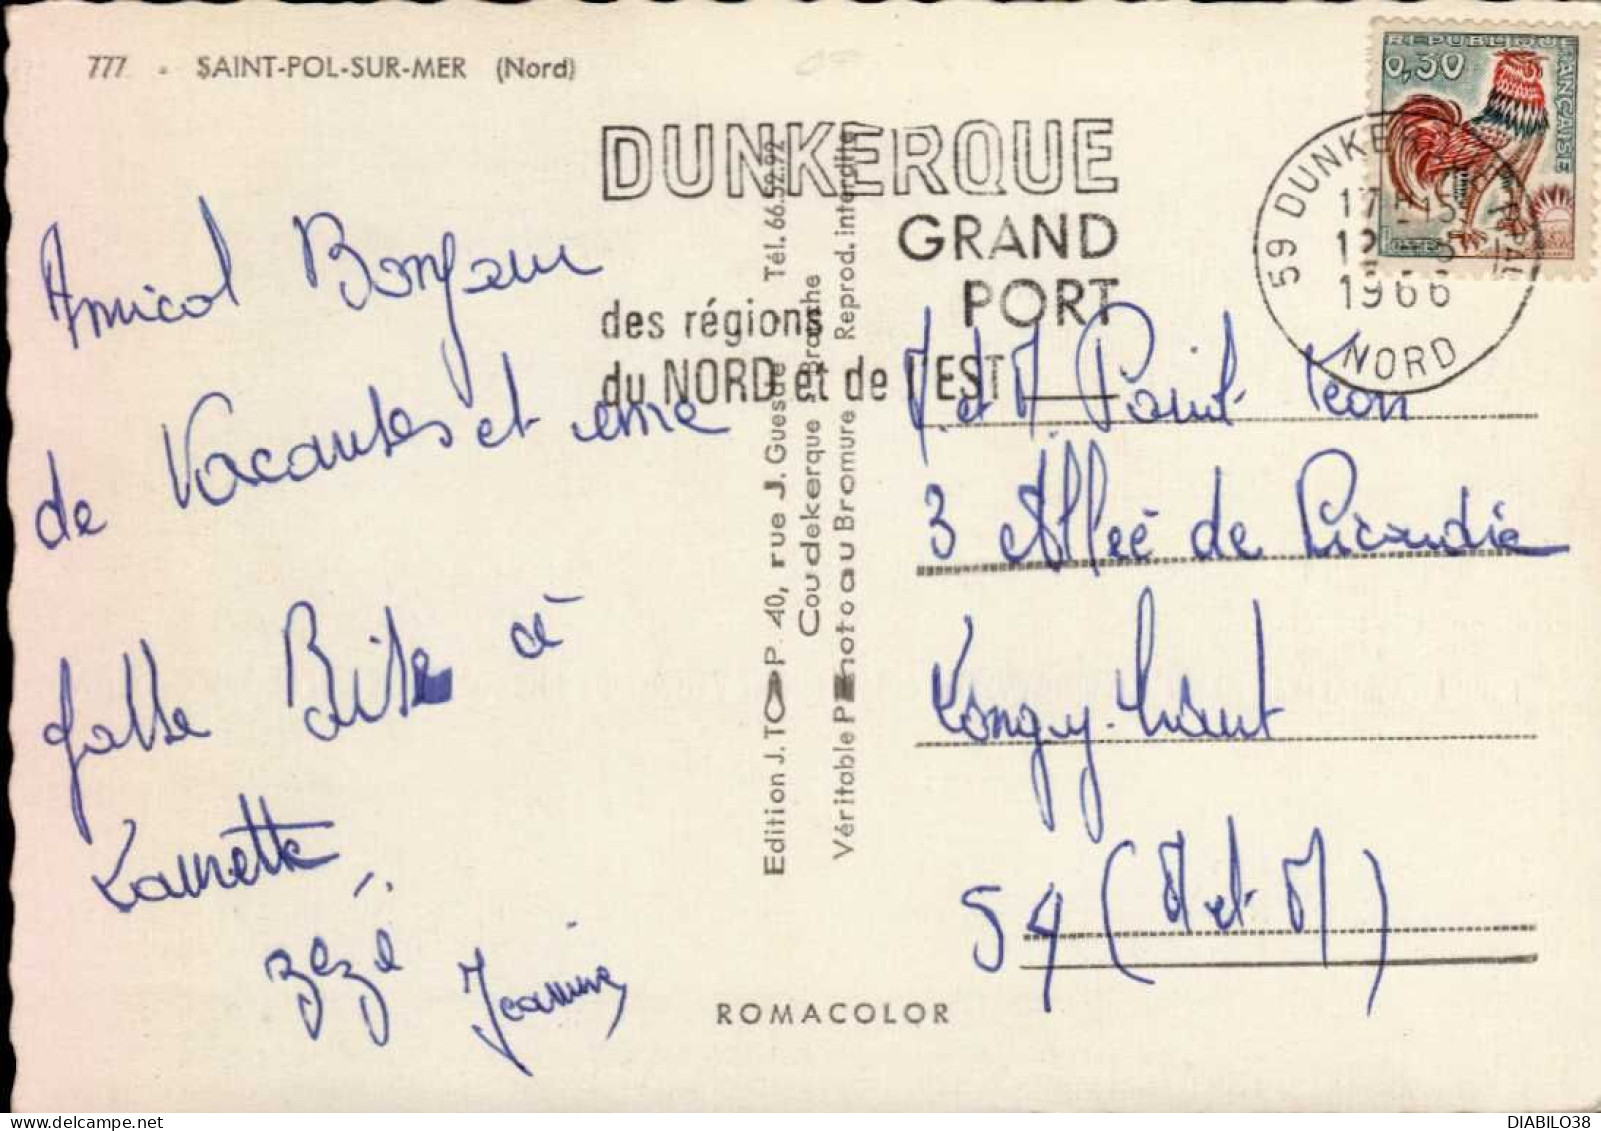 777 - SAINT-POL-SUR-MER (Nord)
REPUBLIQUE FRANÇAISE
0,30
DUNKERQUE
GRAND
PORT
des régions
du NORD et de l'EST
59 DUNKERQUE
17H15
1966
NORD
Amical Bonjour
de Vacantes et une
Grosse Bise à
Laurette
zézé
Jeanine
Edition J. TOP 40, rue J. Guesde - Tél. 66.52.92
Coudekerque - Branche
Véritable Photo au Bromure Reprod. interdite
M. et M. Point Léon
3 Allée de Picardie
Longwy-haut
54 (M et M)
ROMACOLOR
DIABILO38